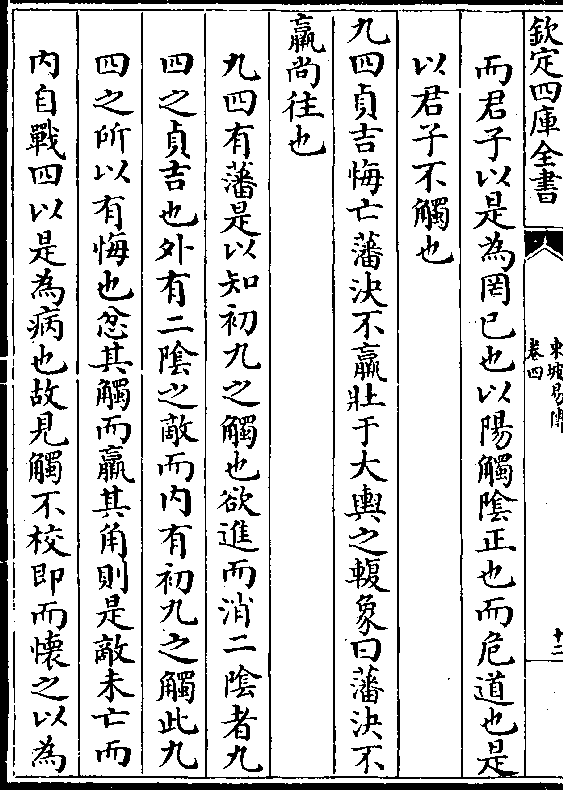 欽定四庫全書
東坡易傳
卷四
十二
而君子以是為罔已也以陽觸陰正也而危道也是
以君子不觸也
九四貞吉悔亡藩決不羸壯于大輿之輹象曰藩決不
羸尚往也
九四有藩是以知初九之觸也欲進而消二陰者九
四之貞吉也外有二陰之敵而内有初九之觸此九
四之所以有悔也忿其觸而羸其角則是敵未亡而
内自戰四以是為病也故見觸不校即而懷之以為